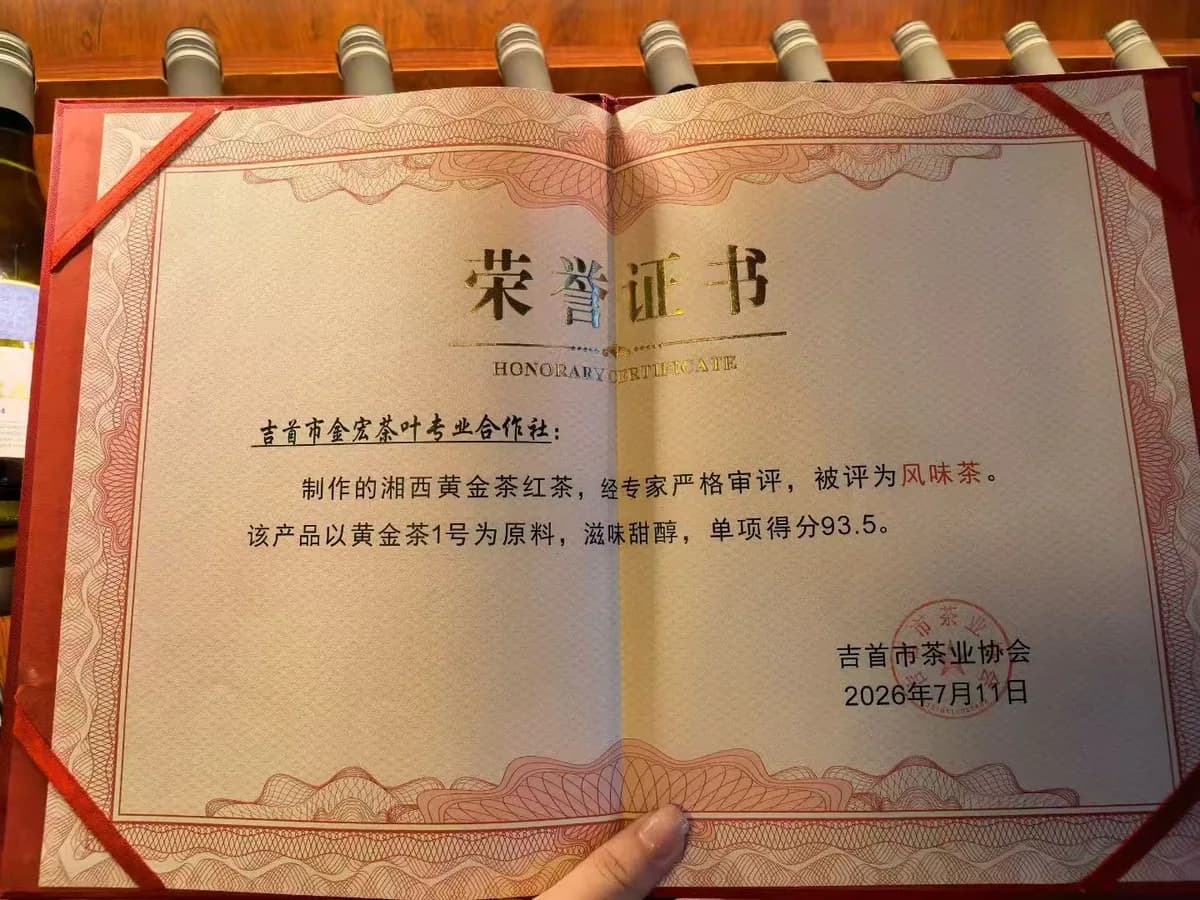 荣誉证书
HONORARY CERTIFICATE
吉首市金宏茶叶专业合作社：
制作的湘西黄金茶红茶，经专家严格审评，被评为风味茶。
该产品以黄金茶1号为原料，滋味甜醇，单项得分93.5。
吉首市茶业协会
2026年7月11日